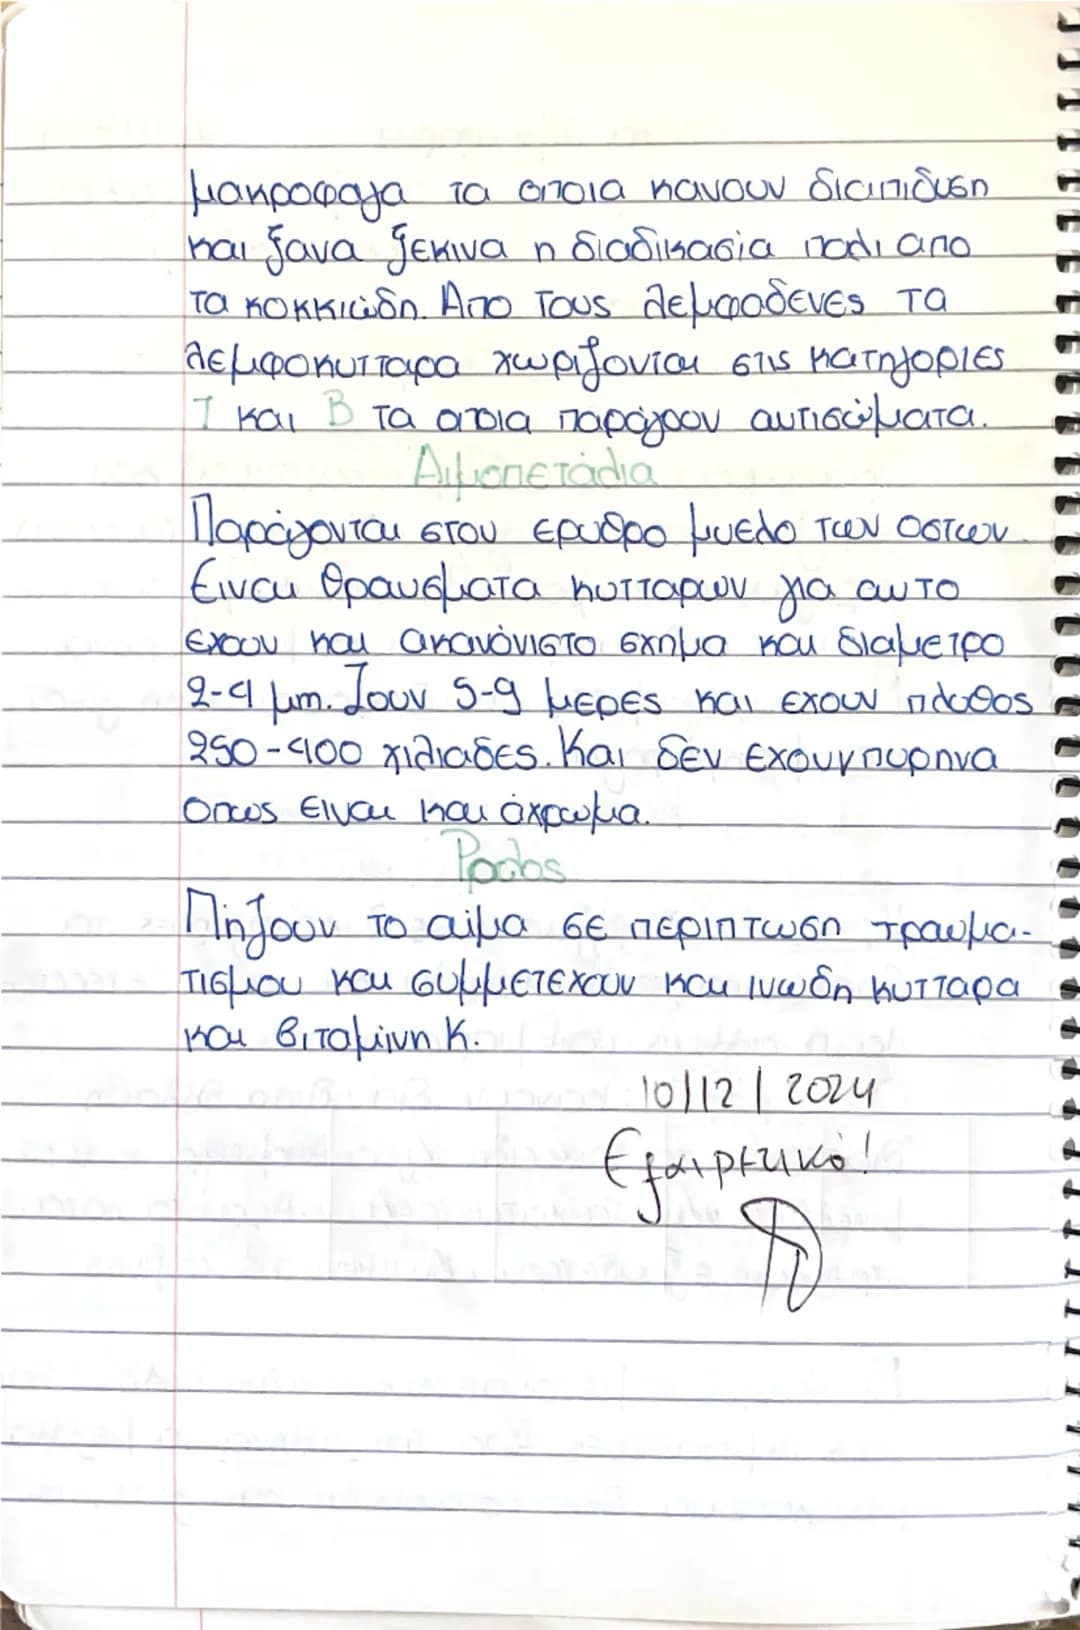 μακροφαγα τα οποια κανουν διαπιδυση
και ξανα ξεκινα η διαδικασια παλι απο
τα κοκκιώδη. Απο τους λεμφαδενες τα
λεμφοκυτταρα χωριζονται στις κατηγοριες
Τ και Β τα οποια παράγουν αντισώματα.
Αιμοπετάλια
Παράγονται στον ερυθρο μυελο των οστων.
Ειναι θραυσματα κυτταρων για αυτο
εχουν και ακανόνιστο σχημα και διαμετρο
2-4 μm. Ζουν 5-9 μερες και εχουν πληθος
250-400 χιλιαδες. Και δεν εχουν πυρηνα
οπως ειναι και άχρωμα.
Ρολος
Πήζουν το αίμα σε περιπτωση τραυμα-
τισμου και συμμετεχουν και ινωδη κυτταρα
και βιταμίνη Κ.
10/12/2024
Εξαιρετικό!